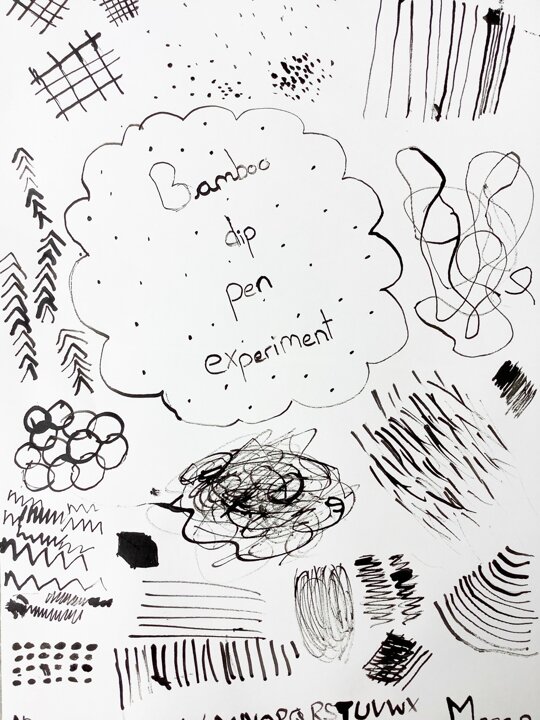 Bamboo
dip
pen
experiment
PQRSTUVWX